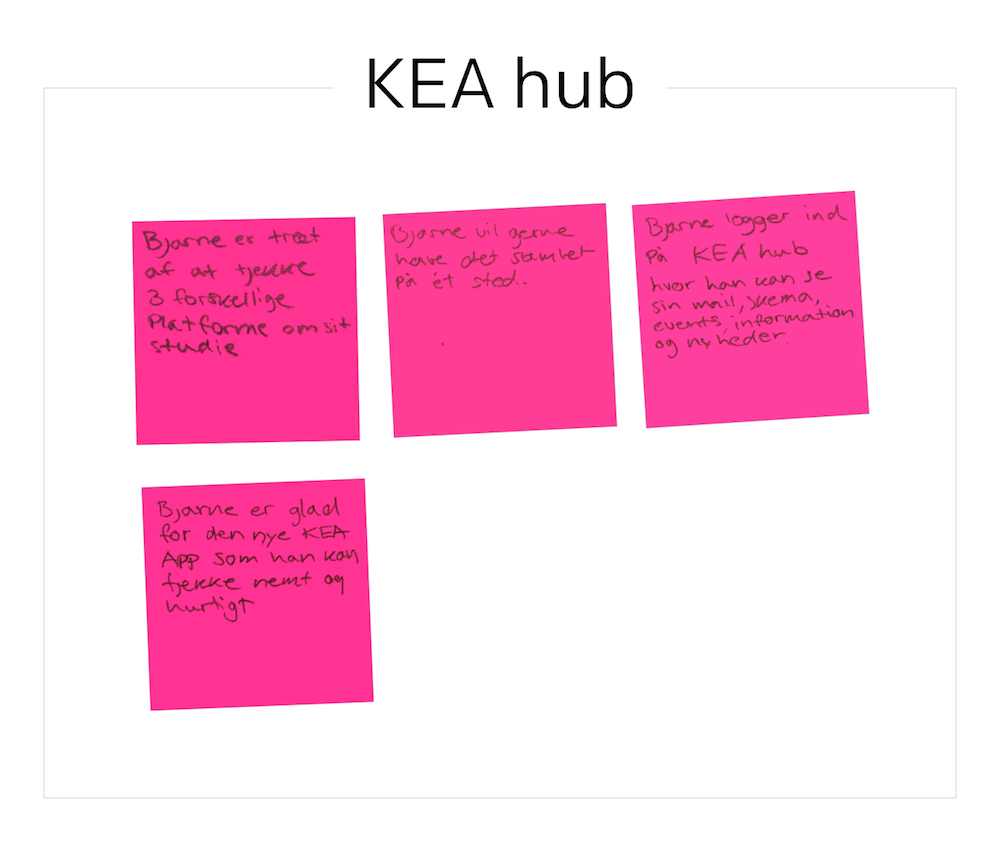 KEA hub
Bjarne er træt
af at tjekke
3 forskellige
Platforme om sit
studie
Bjarne vil gerne
have det samlet
på ét sted.
Bjarne logger ind
på KEA hub
hvor han kan se
sin mail, skema,
events, information
og nyheder.
Bjarne er glad
for den nye KEA
App som han kan
tjekke nemt og
hurtigt